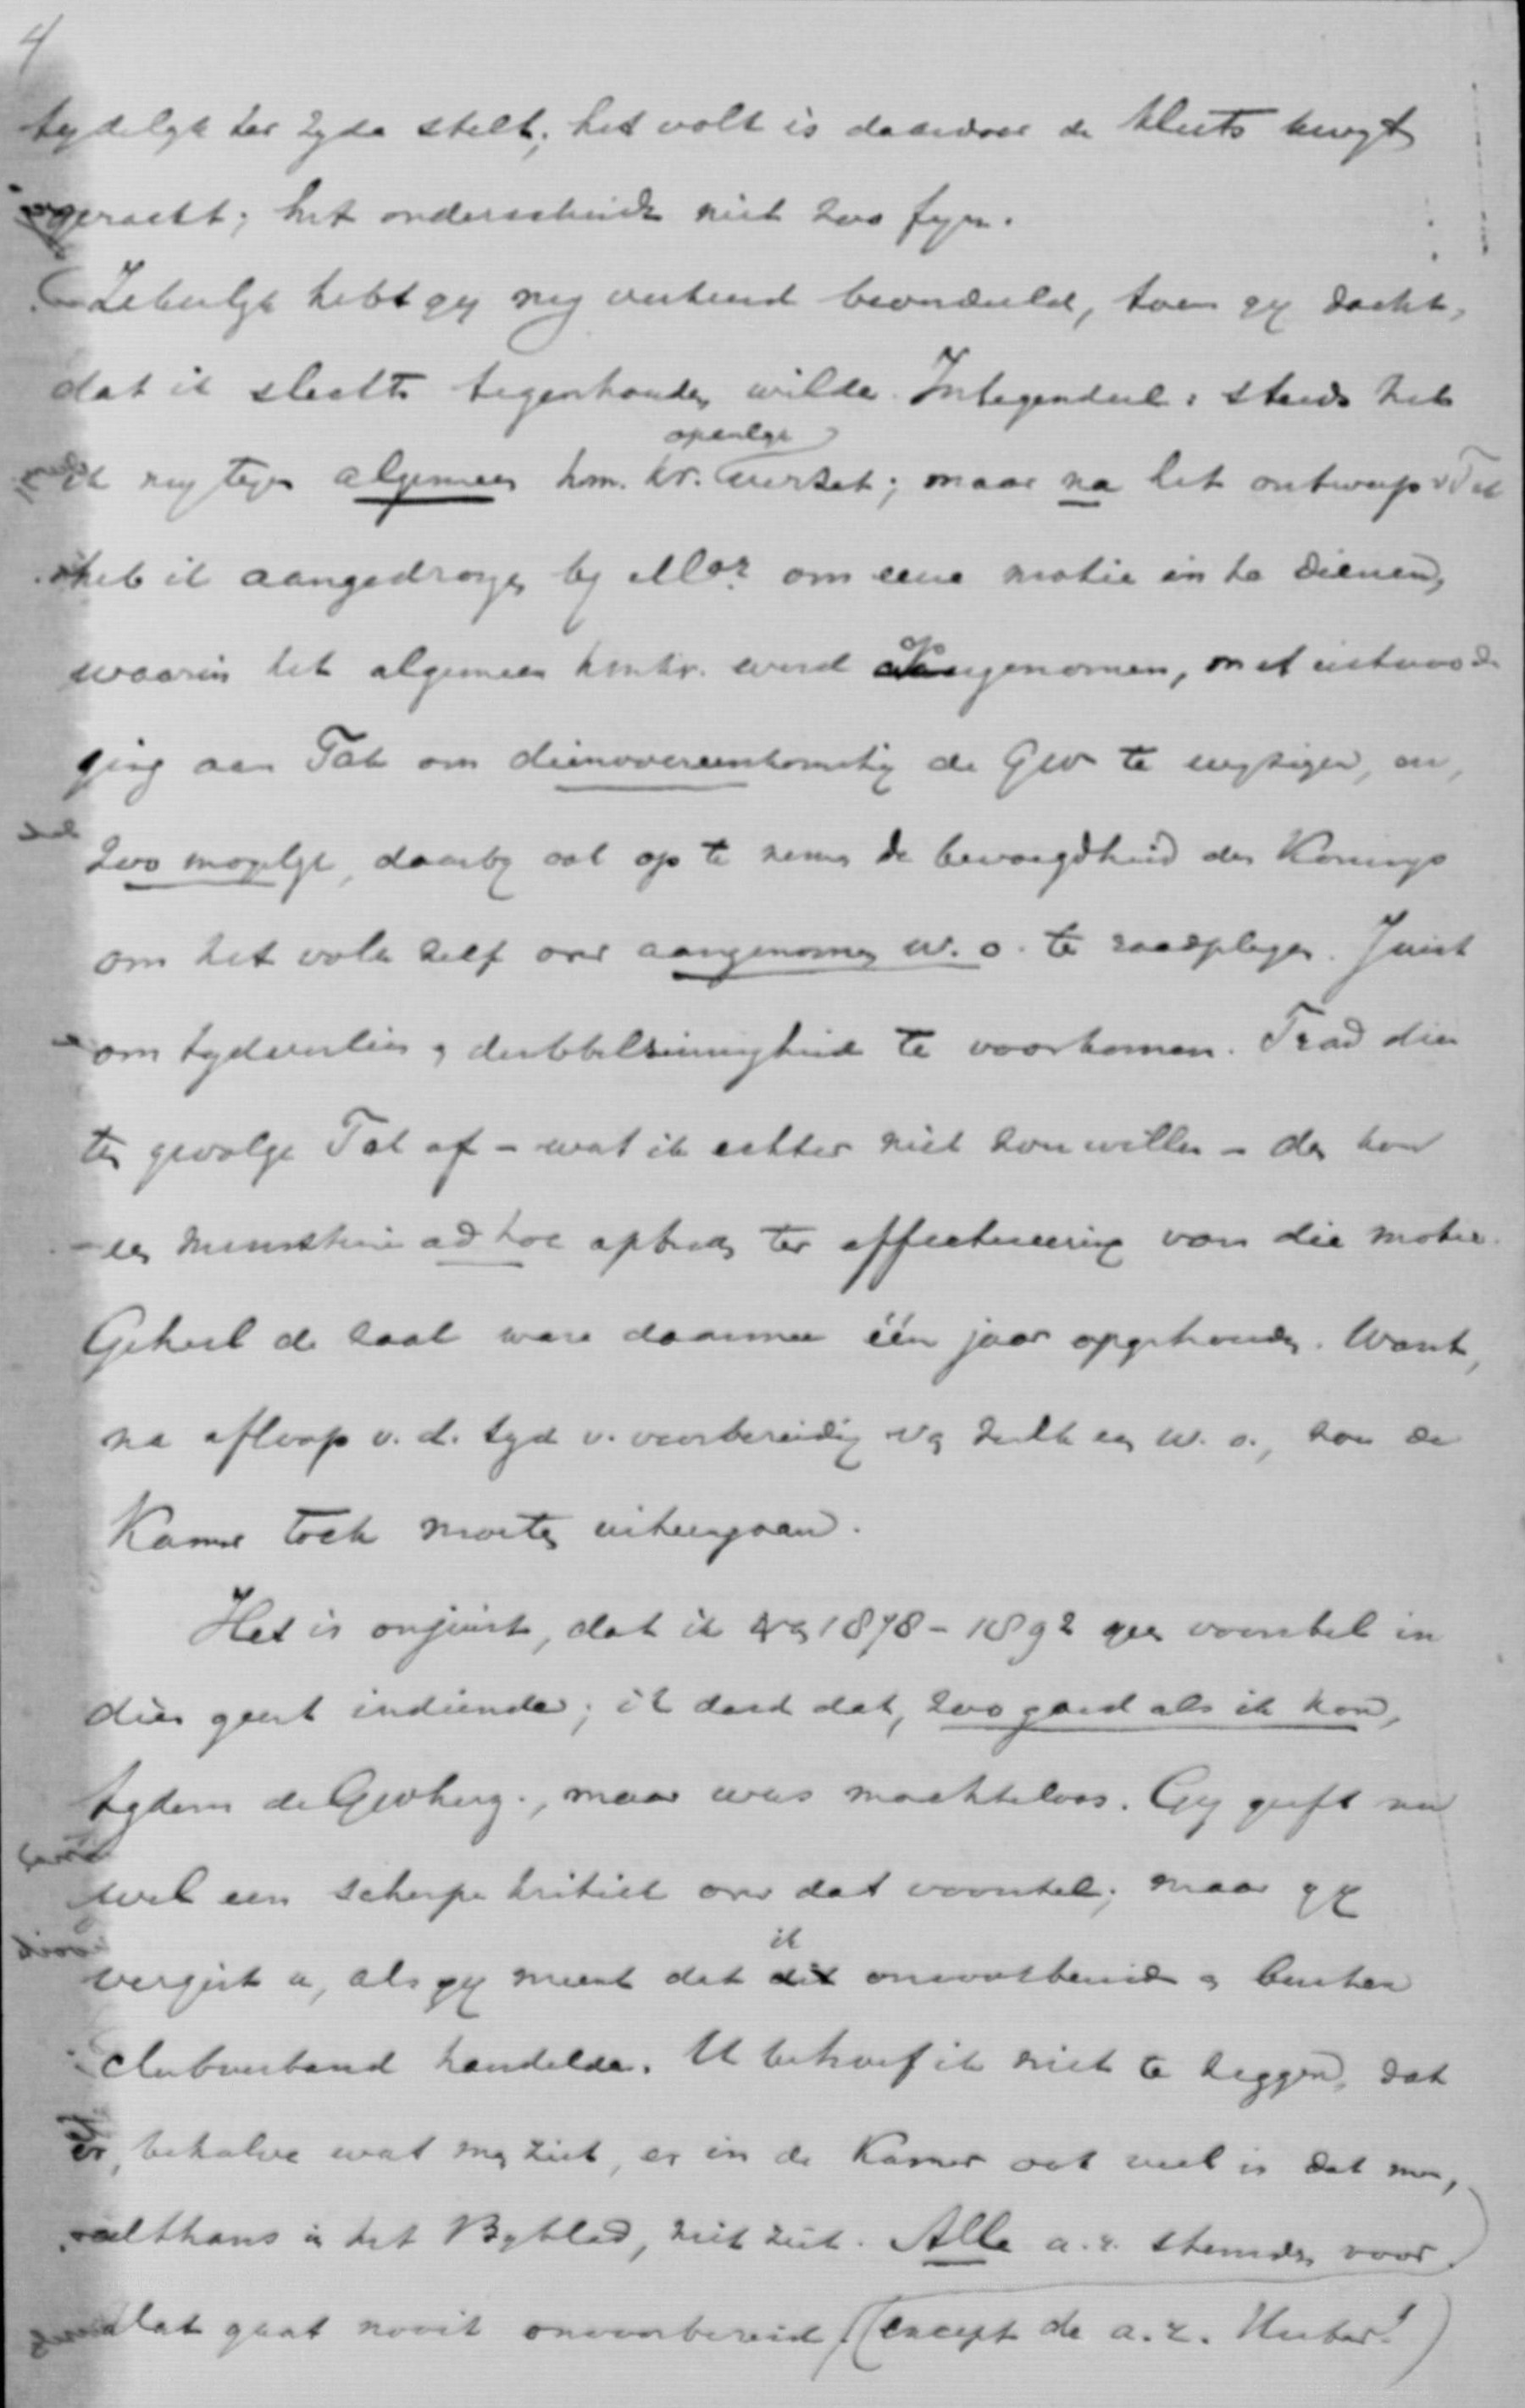 4
tydelyk ter zyde stelt; het volk is daardoor de kluts kwyt
geraakt; het onderscheidt niet zoo fyn.
Zekerlyk hebt gy my verkeerd beoordeeld, toen gy dacht,
dat ik slechts tegenhouden wilde. Integendeel: steeds heb
ik my tegen algemeen hm. kr. openlyk verzet; maar na het ontwerp v Tak
heb ik aangedrongen by om eene motie in te dienen,
waarin het algemeen hmkr. werd opgenomen, met uitnoodi
ging aan Tak om dienovereenkomstig de Gw te wyzigen, en,
zoo mogelyk, daarby ook op te nemen de bevoegdheid des Konings
om het volk zelf over aangenomen w. o. te raadplegen. Juist
om tydverlies en dubbelzinnigheid te voorkomen. Trad dien
ten gevolge Tak af – wat ik echter niet zou willen – dan kon
een ministerie ad hoc optreden ter effectueering van die motie.
Geheel de zaak ware daarmee één jaar opgehouden. Want,
na afloop v. d. tyd v. voorbereiding van zulk een w. o., zou de
Kamer toch moeten uiteengaan.
Het is onjuist, dat ik van 1878 – 1892 geen voorstel in
dien geest indiende; ik deed dat, zoo goed als ik kon,
tydens de Gwherz., maar was machteloos. Gy geeft nu
wel een scherpe kritiek over dat voorstel; maar gy
vergist u, als gy meent dat ik onvoorbereid en buiten
clubverband handelde. U behoef ik niet te zeggen, dat
er, behalve wat men ziet, er in de Kamer ook veel is dat men,
althans in het Byblad, niet ziet. Alle a.r. stemden voor.
dat gaat nooit onvoorbereid. (except de a.r. Huber!)